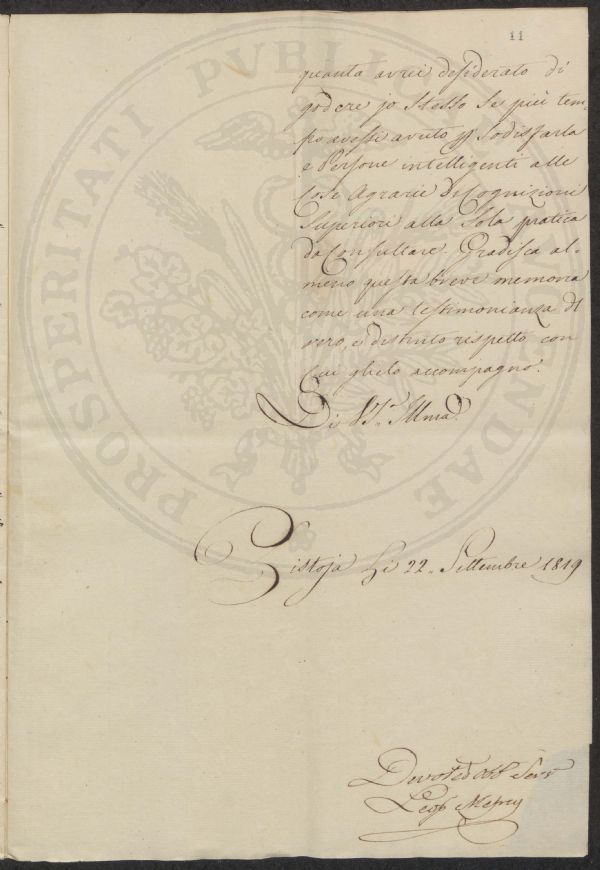 11
quanta avrei desiderato di
godere jo stesso se più tem-
po avessi avuto p sodisfarla
e Persone intelligenti alle
Cose Agrarie di Cognizioni
Superiori alla Sola pratica
da Consultare. Gradisca al-
meno questa breve memoria
come una testimonianza di
vero, e distinto rispetto con
Cui glielo accompagno.
Di V.S. Illma
Pistoja Li 22. Settembre 1819
Devotmo Obbl Serv
PROSPERITATI PVBLICAE AVGENDAE